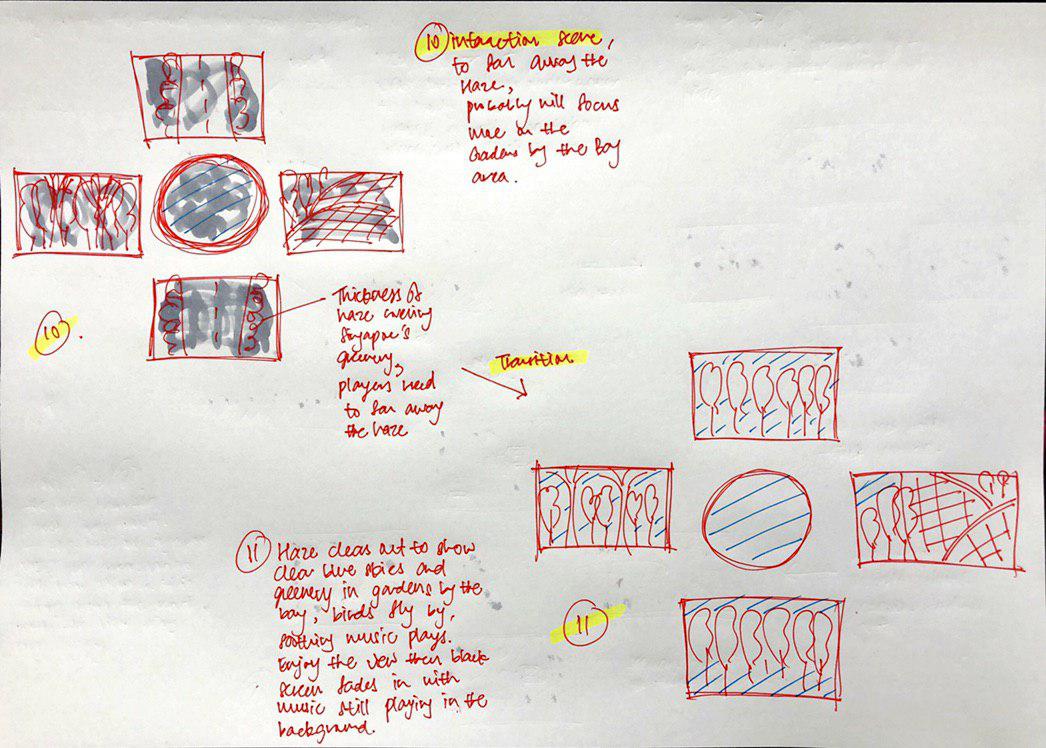 10 interaction scene,
to fan away the
Haze,
probably will focus
more on the
Gardens by the Bay
area.
Thickness of
haze covering
Singapore's
greenery,
players need
to fan away
the haze
10.
Transition
11 Haze clears out to show
clear blue skies and
greenery in gardens by the
bay, birds fly by,
soothing music plays.
Enjoy the view then black
screen fades in with
music still playing in the
background.
11